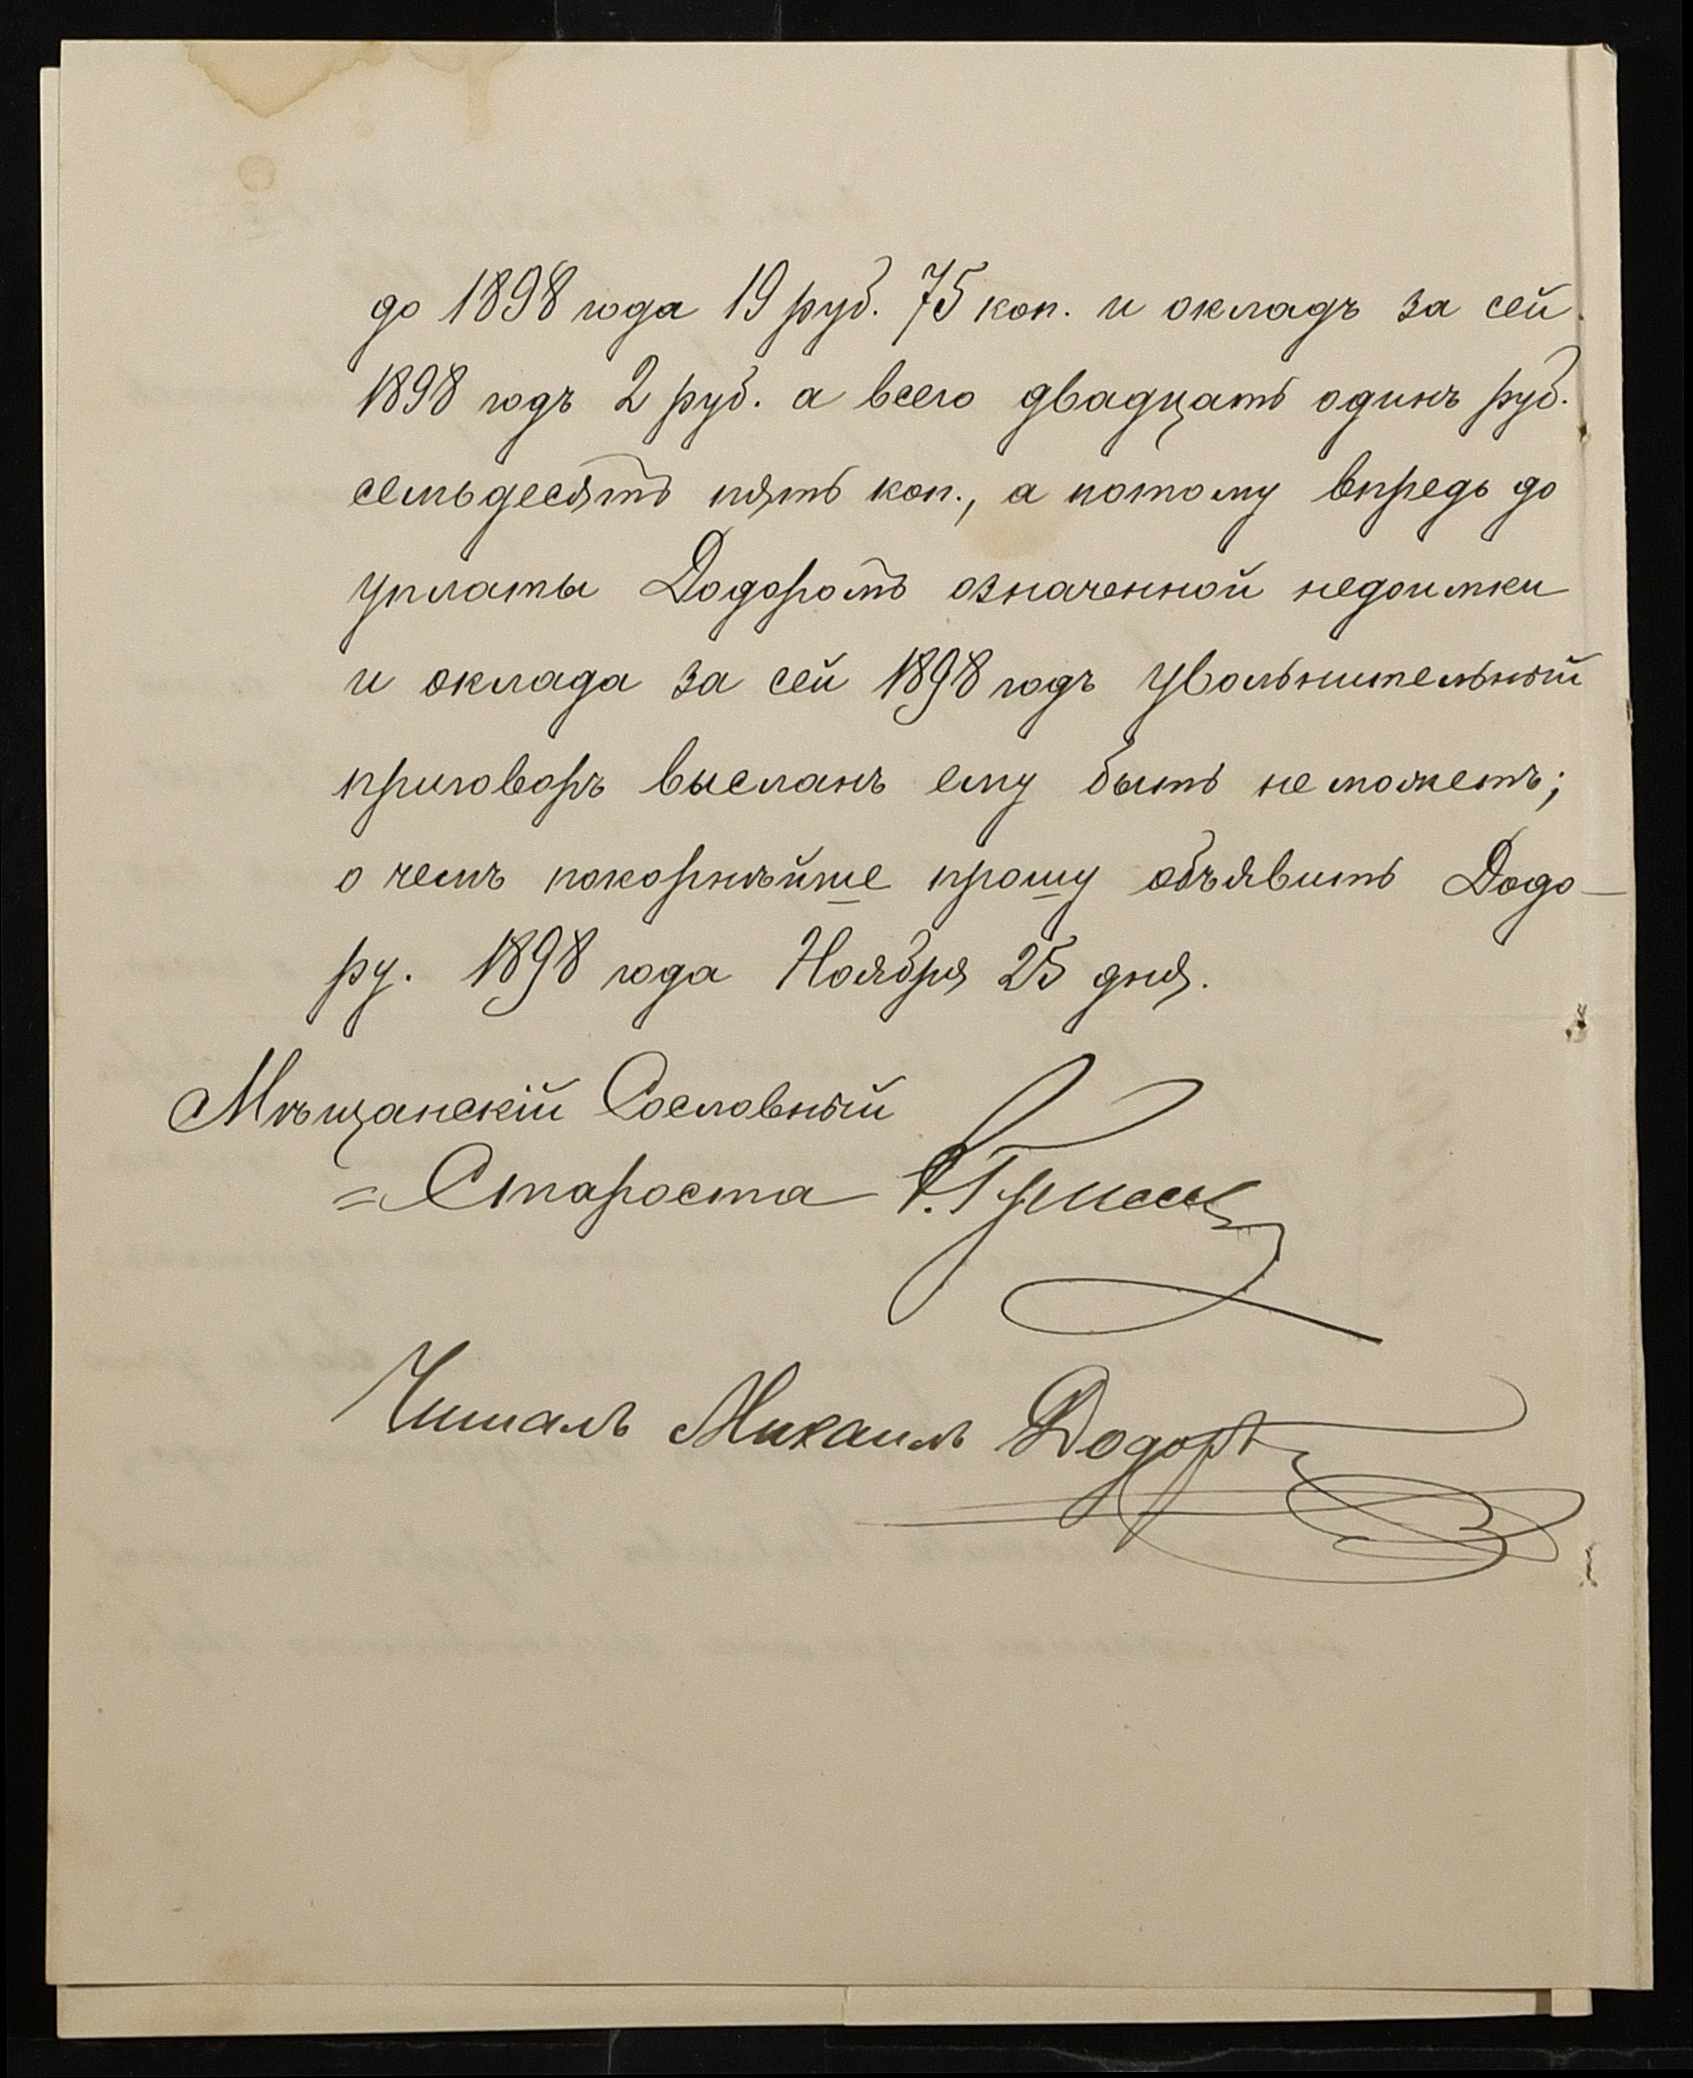 до 1898 года 19 руб. 75 коп. и окладъ за сей
1898 годъ 2 руб. а всего двадцать одинъ руб.
семьдесятъ пять коп., а потому впредь до
уплаты Додоромъ означенной недоимки
и оклада за сей 1898 годъ увольнительный
приговоръ высланъ ему быть не можетъ;
о чемъ покорнѣйше прошу объявить Додо-
ру. 1898 года Ноября 25 дня.
Мѣщанскій Сословный
=Староста
Читалъ Михаилъ Додоръ